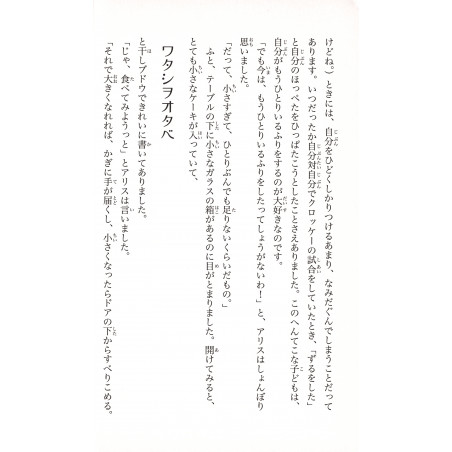 けどね。）ときには、自分をひどくしかりつけるあまり、なみだぐんでしまうことだって
あります。いつだったか自分対自分でクロッケーの試合をしていたとき、「ずるをした」
と自分のほっぺたをひっぱたこうとしたことさえありました。このへんてこな子どもは、
自分がもうひとりいるふりをするのが大好きなのです。
「でも今は、もうひとりいるふりをしたってしょうがないわ！」と、アリスはしょんぼり
思いました。
「だって、小さすぎて、ひとりぶんでも足りないくらいだもの。」
ふと、テーブルの下に小さなガラスの箱があるのに目がとまりました。開けてみると、
とても小さなケーキが入っていて、
ワタシヲオタベ
と干しブドウできれいに書いてありました。
「じゃ、食べてみようっと」とアリスは言いました。
「それで大きくなれれば、かぎに手が届くし、小さくなったらドアの下からすべりこめる。